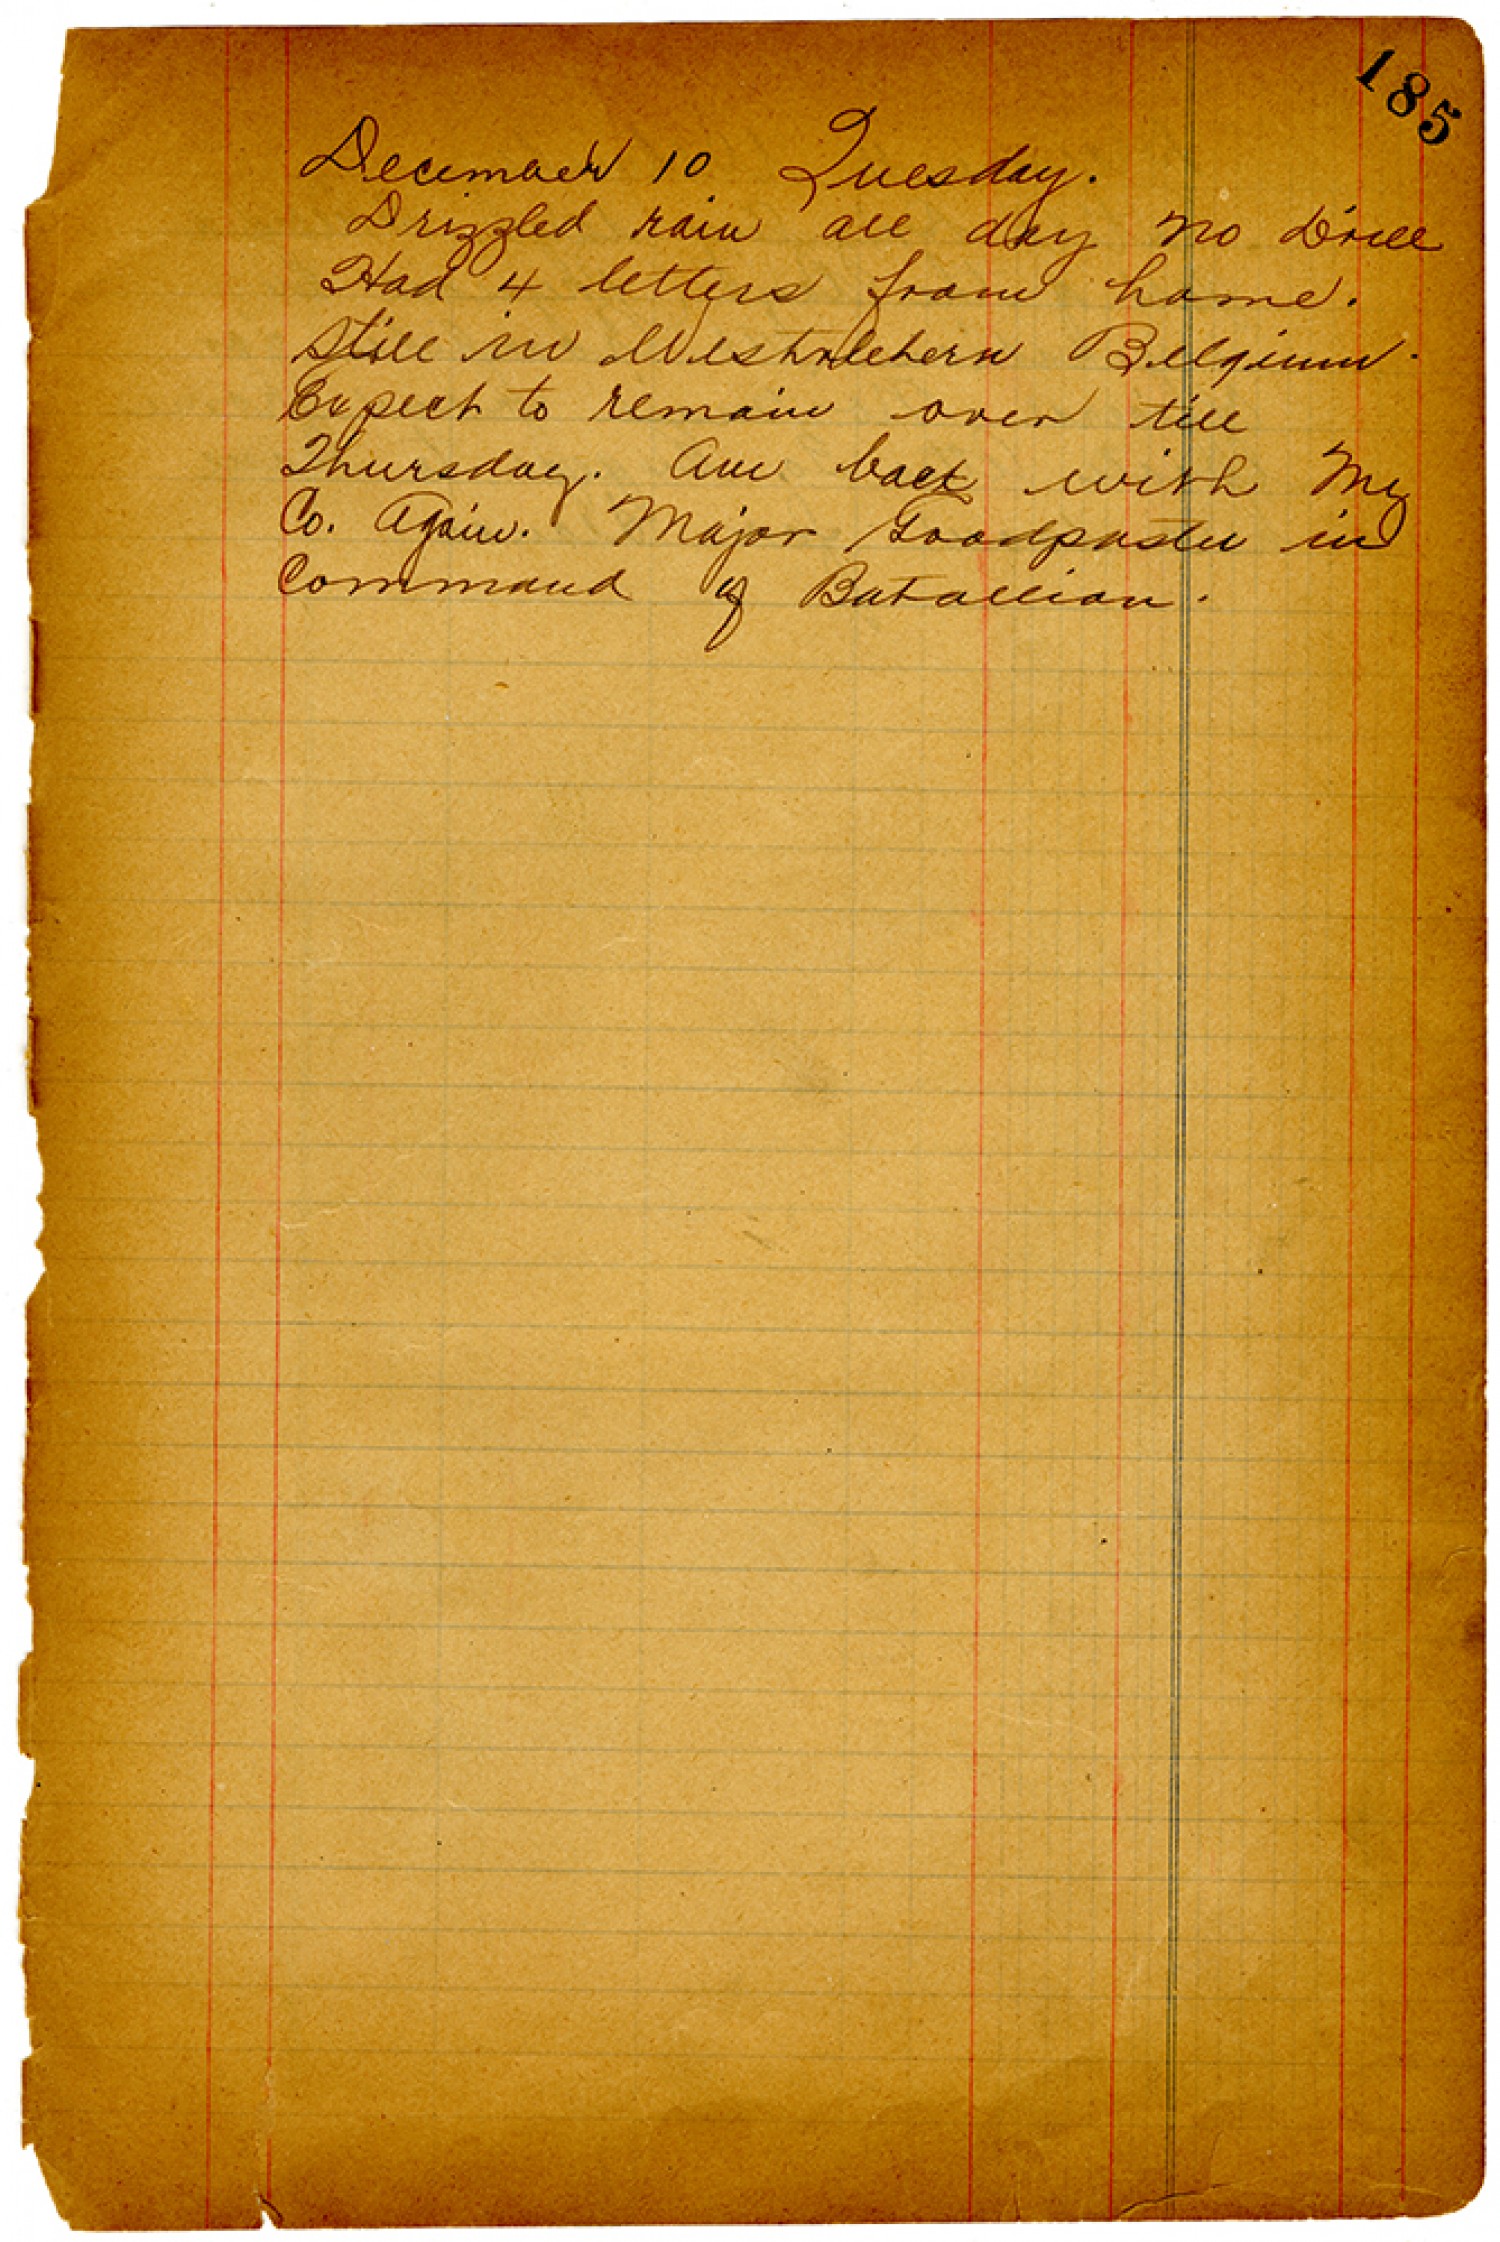 185
December 10 Tuesday.
Drizzled rain all day no Drill
Had 4 letters from home.
Still in Westrolehern Belgium.
Expect to remain over till
Thursday. Am back with My
Co. Again. Major Goodpaster in
Command of Batallian.